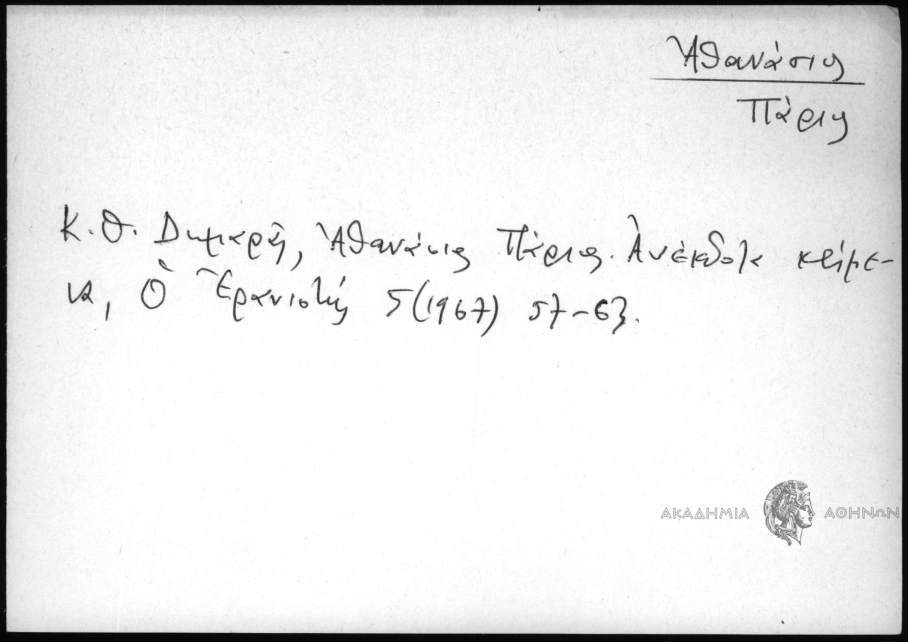 Ἀθανάσιος
Πάριος
Κ. Θ. Δημαρᾶ, Ἀθανάσιος Πάριος. Ἀνέκδοτα κείμε-
να, Ὁ Ἐρανιστής 5 (1967) 57-63.
ΑΚΑΔΗΜΙΑ ΑΘΗΝΩΝ